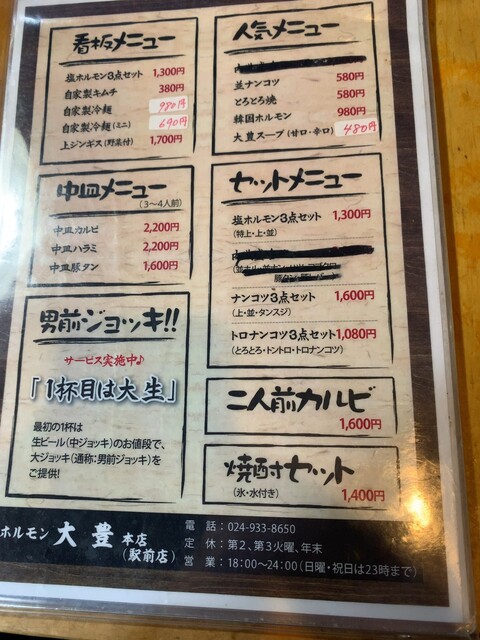 看板メニュー
塩ホルモン3点セット 1,300円
自家製キムチ 380円
自家製冷麺 980円
自家製冷麺(ミニ) 690円
上ジンギス(野菜付) 1,700円
人気メニュー
並ナンコツ 580円
とろとろ焼 580円
韓国ホルモン 980円
大豊スープ(甘口・辛口) 480円
中皿メニュー
(3〜4人前)
中皿カルビ 2,200円
中皿ハラミ 2,200円
中皿豚タン 1,600円
セットメニュー
塩ホルモン3点セット 1,300円
(特上・上・並)
ナンコツ3点セット 1,600円
(上・並・タンスジ)
トロナンコツ3点セット 1,080円
(とろとろ・トントロ・トロナンコツ)
男前ジョッキ!!
サービス実施中♪
「1杯目は大生」
最初の1杯は
生ビール(中ジョッキ)のお値段で、
大ジョッキ(通称:男前ジョッキ)を
ご提供!
二人前カルビ
1,600円
焼酎セット
(氷・水付き)
1,400円
ホルモン 大豊 本店
(駅前店)
電話:024-933-8650
定休:第2、第3火曜、年末
営業:18:00〜24:00(日曜・祝日は23時まで)